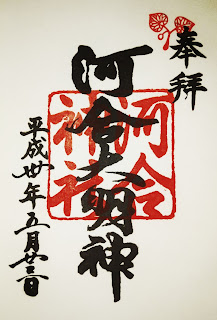 奉拝
河合大明神
河合
神社
平成卅年五月廿三日